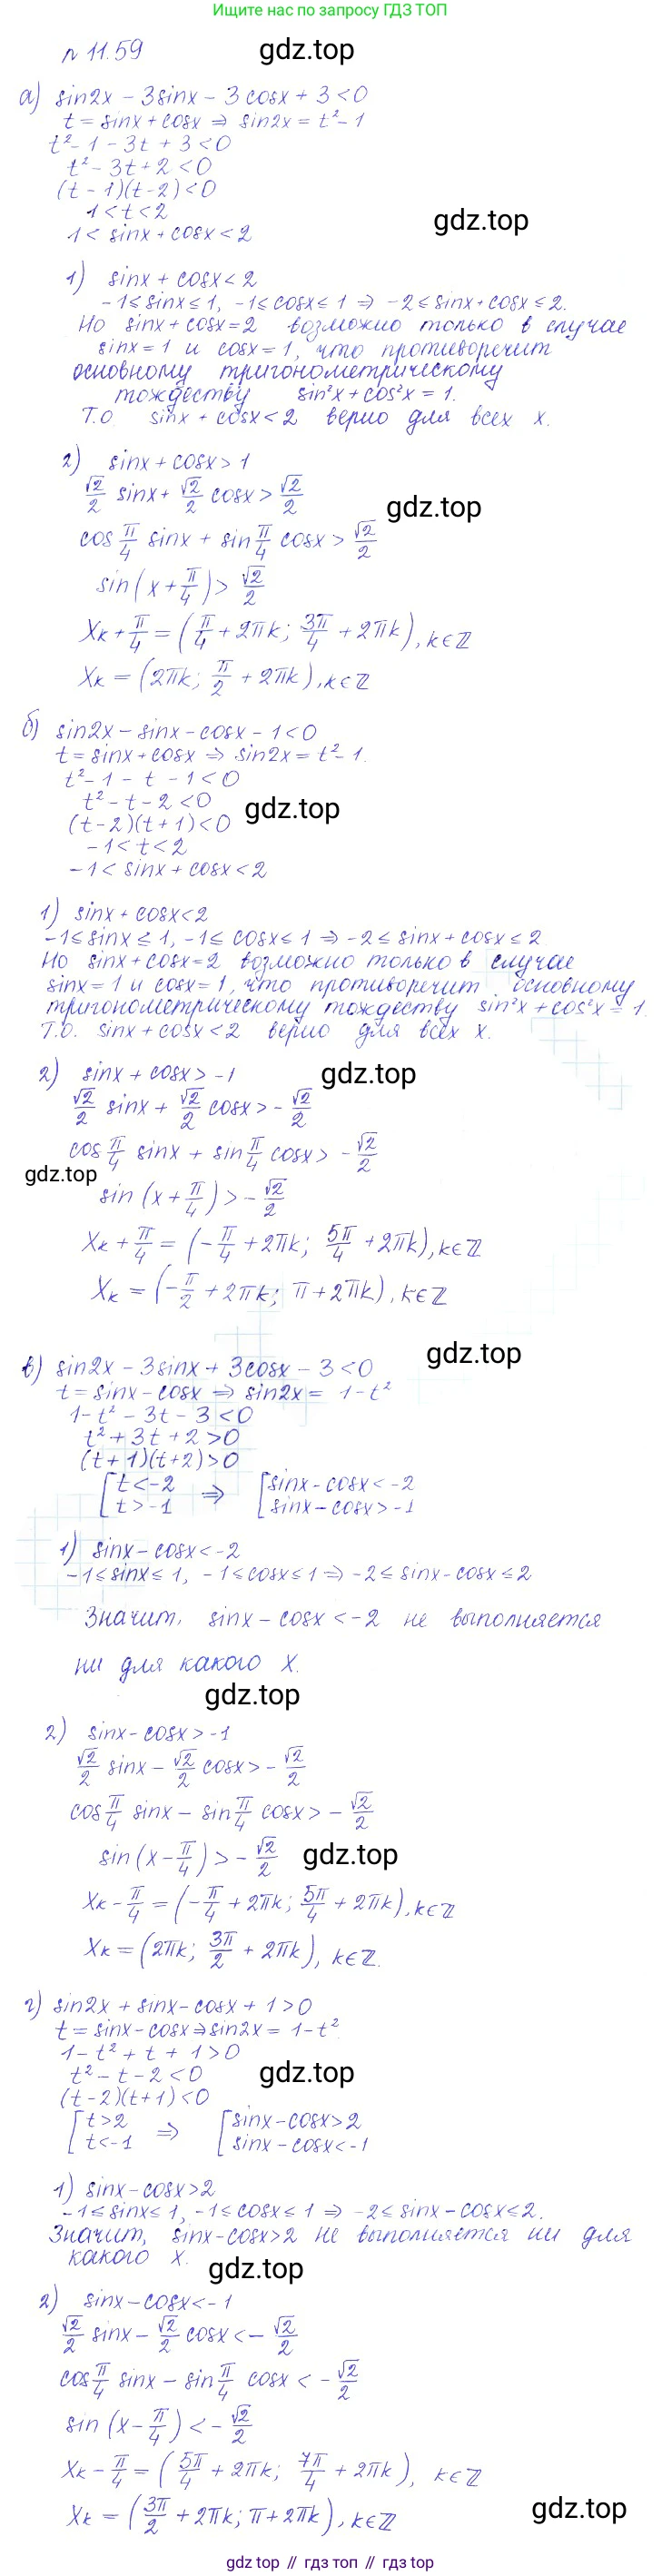 Ищите нас по запросу ГДЗ ТОП
№ 11.59
gdz.top
а) sin2x − 3sinx − 3cosx + 3 < 0
t = sinx + cosx ⇒ sin2x = t² − 1
t² − 1 − 3t + 3 < 0
t² − 3t + 2 < 0
(t − 1)(t − 2) < 0
1 < t < 2
gdz.top
1 < sinx + cosx < 2
1) sinx + cosx < 2
−1 ≤ sinx ≤ 1, −1 ≤ cosx ≤ 1 ⇒ −2 ≤ sinx + cosx ≤ 2.
Но sinx + cosx = 2 возможно только в случае
sinx = 1 и cosx = 1, что противоречит
основному тригонометрическому
тождеству sin²x + cos²x = 1.
Т.О. sinx + cosx < 2 верно для всех x.
2) sinx + cosx > 1
√2/2 sinx + √2/2 cosx > √2/2
gdz.top
cos π/4 sinx + sin π/4 cosx > √2/2
sin(x + π/4) > √2/2
Xk + π/4 = (π/4 + 2πk; 3π/4 + 2πk), k∈ℤ
Xk = (2πk; π/2 + 2πk), k∈ℤ
б) sin2x − sinx − cosx − 1 < 0
t = sinx + cosx ⇒ sin2x = t² − 1.
t² − 1 − t − 1 < 0
t² − t − 2 < 0
gdz.top
(t − 2)(t + 1) < 0
−1 < t < 2
−1 < sinx + cosx < 2
1) sinx + cosx < 2
−1 ≤ sinx ≤ 1, −1 ≤ cosx ≤ 1 ⇒ −2 ≤ sinx + cosx ≤ 2
Но sinx + cosx = 2 возможно только в случае
sinx = 1 и cosx = 1, что противоречит основному
тригонометрическому тождеству sin²x + cos²x = 1.
Т.О. sinx + cosx < 2 верно для всех x.
2) sinx + cosx > −1
gdz.top
√2/2 sinx + √2/2 cosx > −√2/2
cos π/4 sinx + sin π/4 cosx > −√2/2
gdz.top
sin(x + π/4) > −√2/2
Xk + π/4 = (−π/4 + 2πk; 5π/4 + 2πk), k∈ℤ
Xk = (−π/2 + 2πk; π + 2πk), k∈ℤ
gdz.top
в) sin2x − 3sinx + 3cosx − 3 < 0
t = sinx − cosx ⇒ sin2x = 1 − t²
1 − t² − 3t − 3 < 0
t² + 3t + 2 > 0
(t + 1)(t + 2) > 0
[t < −2 ⇒ [sinx − cosx < −2
[t > −1 [sinx − cosx > −1
1) sinx − cosx < −2
−1 ≤ sinx ≤ 1, −1 ≤ cosx ≤ 1 ⇒ −2 ≤ sinx − cosx ≤ 2
Значит, sinx − cosx < −2 не выполняется
ни для какого x.
gdz.top
2) sinx − cosx > −1
√2/2 sinx − √2/2 cosx > −√2/2
cos π/4 sinx − sin π/4 cosx > −√2/2
sin(x − π/4) > −√2/2
gdz.top
Xk − π/4 = (−π/4 + 2πk; 5π/4 + 2πk), k∈ℤ
Xk = (2πk; 3π/2 + 2πk), k∈ℤ.
г) sin2x + sinx − cosx + 1 > 0
t = sinx − cosx ⇒ sin2x = 1 − t²
1 − t² + t + 1 > 0
t² − t − 2 < 0
gdz.top
(t − 2)(t + 1) < 0
[t > 2 ⇒ [sinx − cosx > 2
[t < −1 [sinx − cosx < −1
1) sinx − cosx > 2
−1 ≤ sinx ≤ 1, −1 ≤ cosx ≤ 1 ⇒ −2 ≤ sinx − cosx ≤ 2.
Значит, sinx − cosx > 2 не выполняется ни для
какого x.
gdz.top
2) sinx − cosx < −1
√2/2 sinx − √2/2 cosx < −√2/2
cos π/4 sinx − sin π/4 cosx < −√2/2
sin(x − π/4) < −√2/2
Xk − π/4 = (5π/4 + 2πk; 7π/4 + 2πk), k∈ℤ
Xk = (3π/2 + 2πk; π + 2πk), k∈ℤ
gdz.top
gdz top // гдз топ // гдз.top